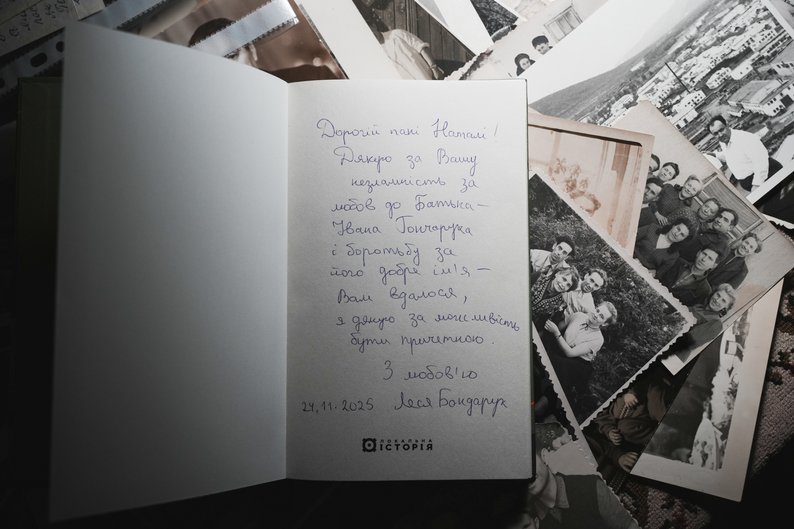 Дорогій пані Наталі!
Дякую за Вашу
незламність за
любов до Батька –
Івана Гончарука
і боротьбу за
його добре ім'я –
Вам вдалося,
я дякую за можливість
бути причетною.
З любов'ю
24.11.2025 Леся Бондарук
ЛОКАЛЬНА
ІСТОРІЯ